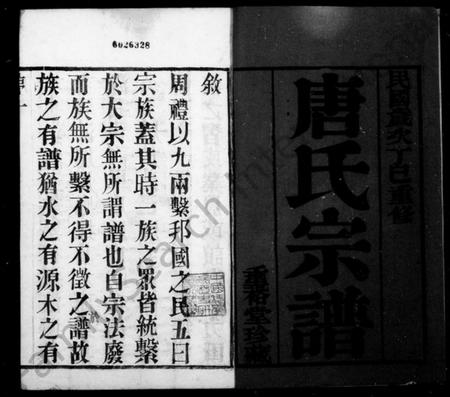 6026328
民國歲次辛巳重修
唐氏宗譜
垂裕堂珍藏
敘
周禮以九兩繫邦國之民五曰
宗族蓋其時一族之眾皆統繫
於大宗無所謂譜也自宗法廢
而族無所繫不得不徵之譜故
族之有譜猶水之有源木之有